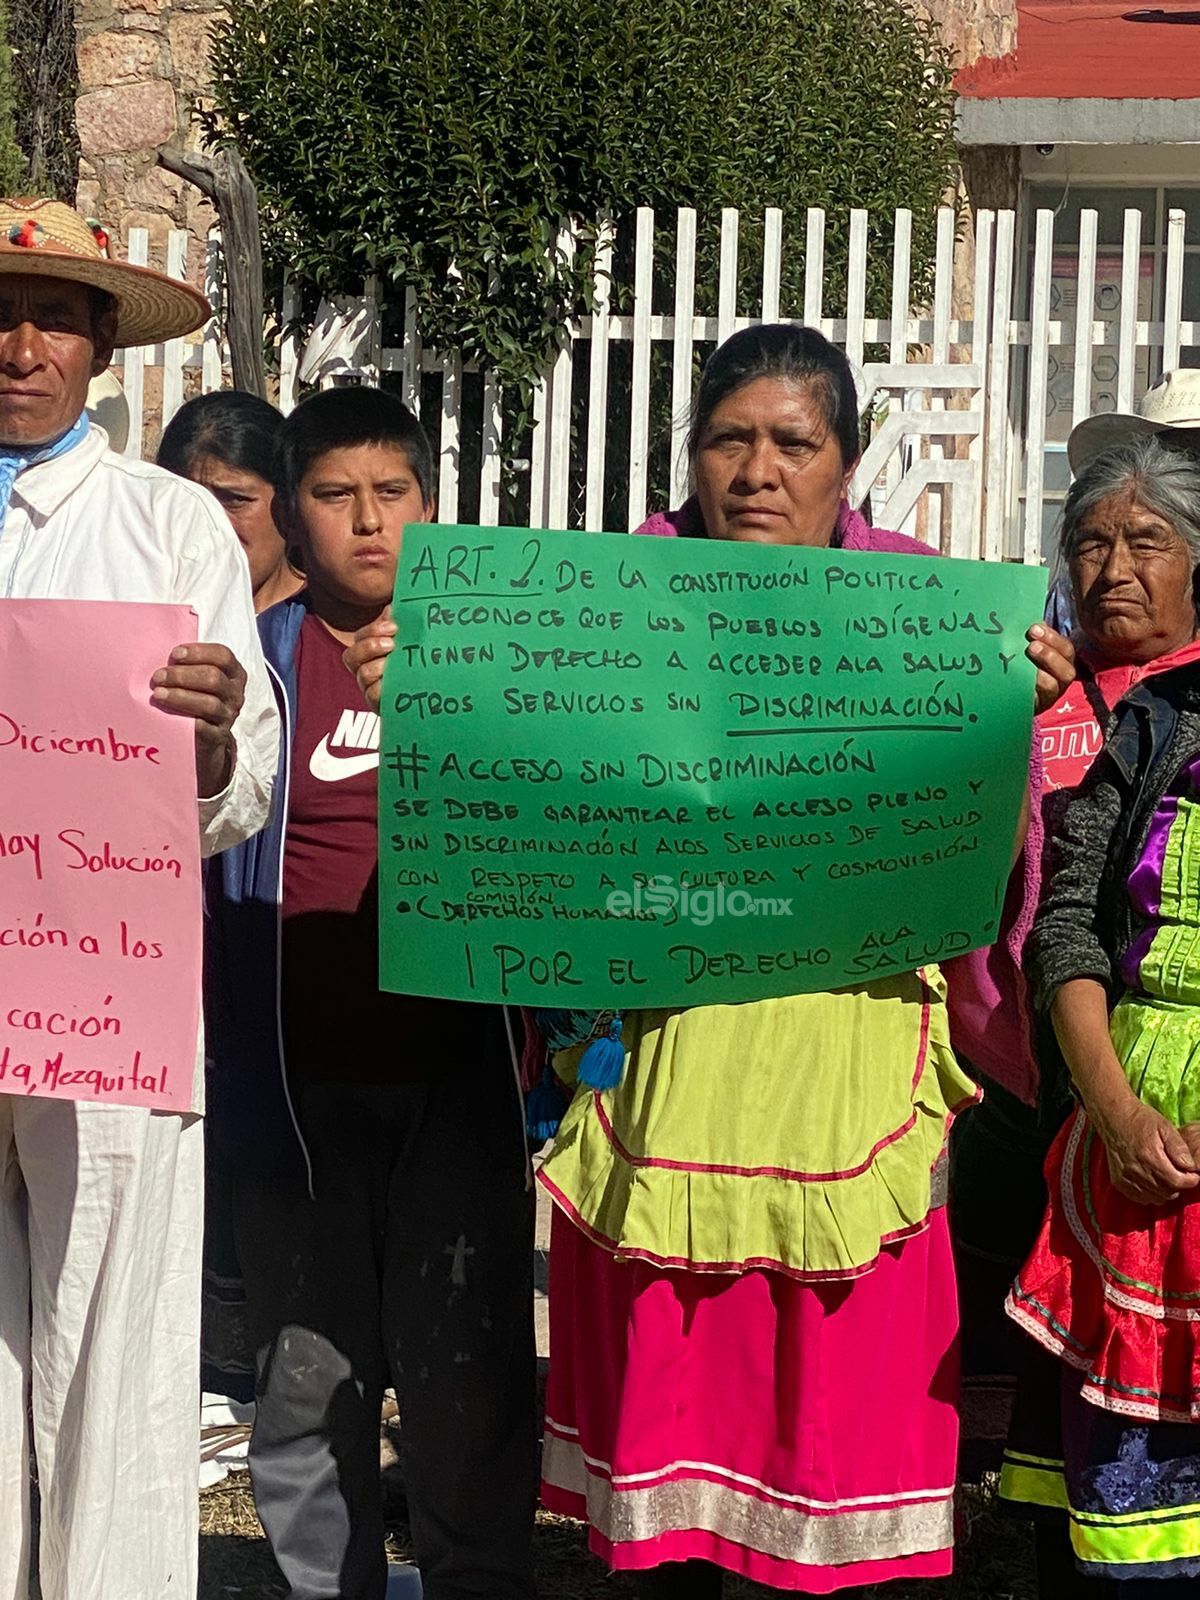 Diciembre
Hay Solución
ción a los
cación
ta, Mezquital.
NIKE
ART. 2. DE LA CONSTITUCIÓN POLITICA,
RECONOCE QUE LOS PUEBLOS INDÍGENAS
TIENEN DERECHO A ACCEDER ALA SALUD Y
OTROS SERVICIOS SIN DISCRIMINACIÓN.
# ACCESO SIN DISCRIMINACIÓN
SE DEBE GARANTIZAR EL ACCESO PLENO Y
SIN DISCRIMINACIÓN ALOS SERVICIOS DE SALUD
CON RESPETO A SU CULTURA Y COSMOVISIÓN.
COMISIÓN
• (DERECHOS HUMANOS)
¡POR EL DERECHO ALA SALUD!
elSiglo.mx